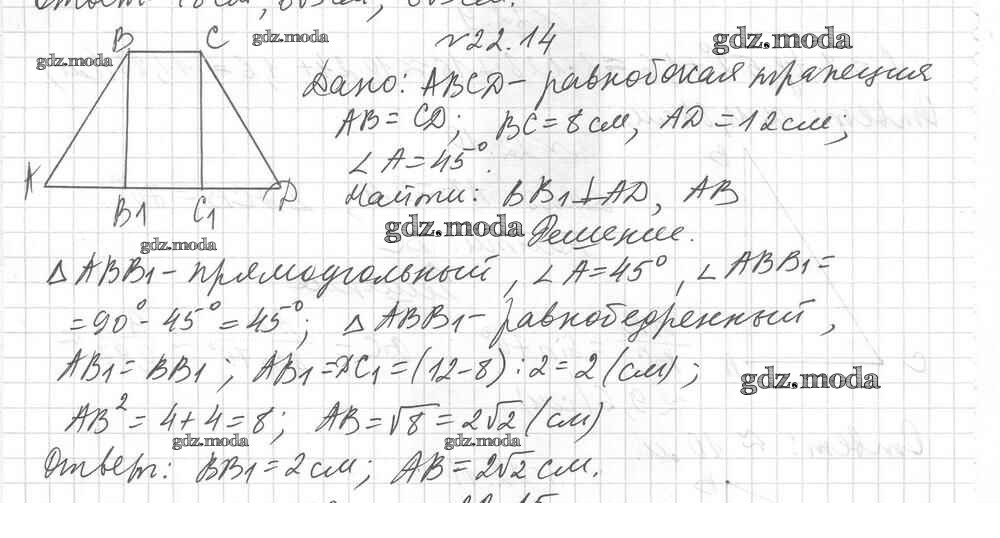 B C
gdz.moda
gdz.moda
№22.14
gdz.moda
Дано: ABCD - равнобокая трапеция
AB = CD; BC = 8 см, AD = 12 см;
∠A = 45°.
A B1 C1 D
Найти: BB1 ⊥ AD, AB
gdz.moda
gdz.moda
Решение.
△ ABB1 - прямоугольный, ∠A = 45°, ∠ABB1 =
= 90° - 45° = 45°; △ ABB1 - равнобедренный,
AB1 = BB1; AB1 = DC1 = (12 - 8) : 2 = 2 (см);
gdz.moda
AB² = 4 + 4 = 8; AB = √8 = 2√2 (см)
gdz.moda gdz.moda
Ответ: BB1 = 2 см; AB = 2√2 см.